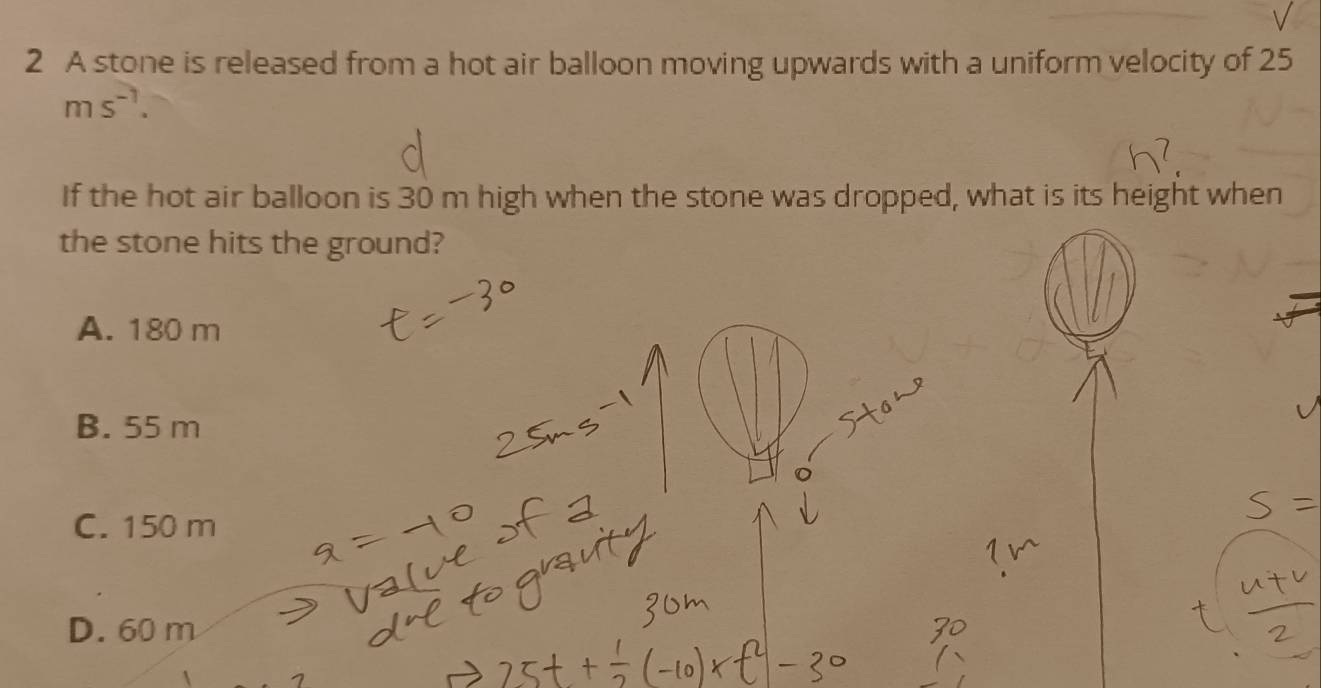 √
2 A stone is released from a hot air balloon moving upwards with a uniform velocity of 25
m s⁻¹.
d
h?
If the hot air balloon is 30 m high when the stone was dropped, what is its height when
the stone hits the ground?
t = -30
A. 180 m
25ms⁻¹
stone
B. 55 m
C. 150 m
a = -10
⇒ value of a
due to gravity
?m
S =
t u+v/2
30m
D. 60 m
30
⇒ 25t + ½ (-10) × t² - 30